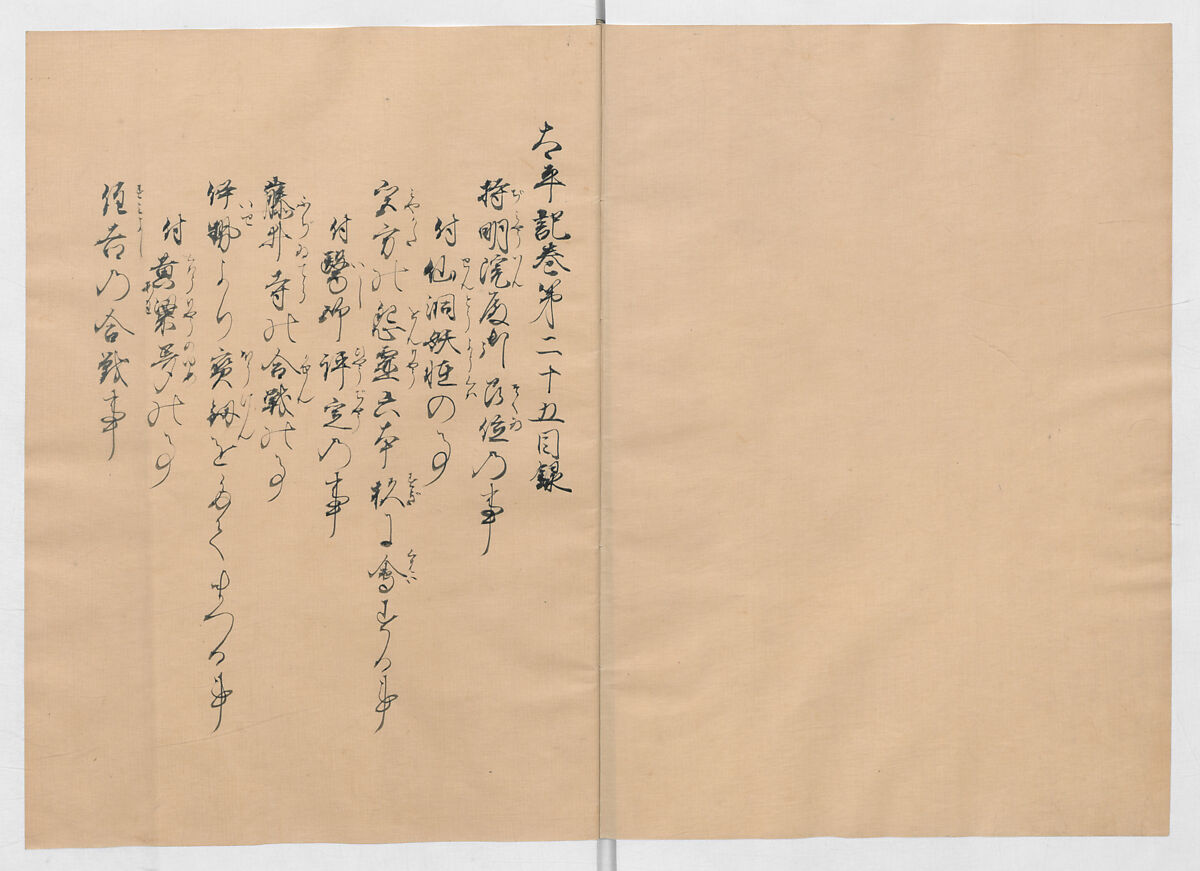 太平記巻第二十五目録
持明院殿御即位の事
付仙洞妖怪の事
宮方の怨霊六本杉に會する事
付醫師評定の事
藤井寺の合戦の事
伊勢より寳剱をたてまつる事
付黄粱夢の事
住吉の合戦事